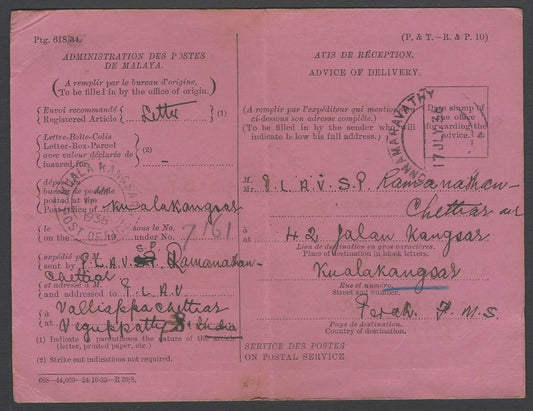 Ptg. 618/34.
ADMINISTRATION DES POSTES
DE MALAYA.
(A remplir par le bureau d'origine.)
(To be filled in by the office of origin.)
Envoi recommandé
Registered Article
Letter
(1)
Lettre-Boîte-Colis
Letter-Box-Parcel
avec valeur déclarée de
insured for
(2)
KUALA KANGSAR
1936
POST OFFICE
posted at the
Post office of
Kualakangsar
sous le No.
on the 19 under No.
7161
expédié par
sent by P. L. A. V. S. P. Ramanathan
Chettiar
et adressé à M
and addressed to P. L. A. V.
Valliappa Chettiar
à
at Veguppatty S. India
(1) Indicate in parentheses the nature of the article
(letter, printed paper, etc.)
(2) Strike out indications not required.
668—44,000—24-10-35—R.39/8.
(P. & T.—R. & P. 10)
AVIS DE RÉCEPTION.
ADVICE OF DELIVERY.
(A remplir par l'expéditeur qui mentionne
ci-dessous son adresse complète.)
(To be filled in by the sender who will
indicate below his full address.)
Date stamp of
the office
forwarding the
advice.
PONNAMARAVATHY
M
Mr. P. L. A. V. S. P. Ramanathan
Chettiar
à
at 42 Jalan Kangsar
Lieu de destination en gros caractères.
Place of destination in block letters.
Kualakangsar
Rue et numéro.
Street and number.
Perak F. M. S.
Pays de destination.
Country of destination.
SERVICE DES POSTES
ON POSTAL SERVICE